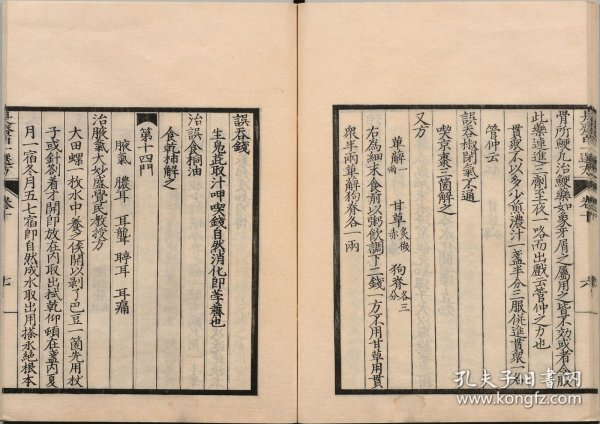 骨所鯁凡治鯁藥如象牙屑之屬用之皆不効或者令服
此藥連進三劑至夜一咯而出戲云管仲之力也
貫衆不以多少煎濃汁一盞半分二服併進貫衆一名
管仲云
誤吞椒閉氣不通
喫京棗三箇解之
又方
萆解一兩 甘草炙微赤 狗脊各三分
右為細末食前以粥飲調下二錢一方不用甘草用貫
衆半兩萆解狗脊各一兩
誤吞錢
生鳧茈取汁呷喫錢自然消化即荸薺也
治誤食桐油
食乾柿解之
第十四門
腋氣 膿耳 耳聾 聤耳 耳痛
治腋氣大妙盛覺民教授方
大田螺一枚水中養之俟開以剥了巴豆一箇先用杖
子或針劄着才開即放在内取出拭乾仰頓在盞内夏
月一宿冬月五七宿即自然成水取出用搽水絶根本
卷十
七
孔夫子旧书网
www.kongfz.com